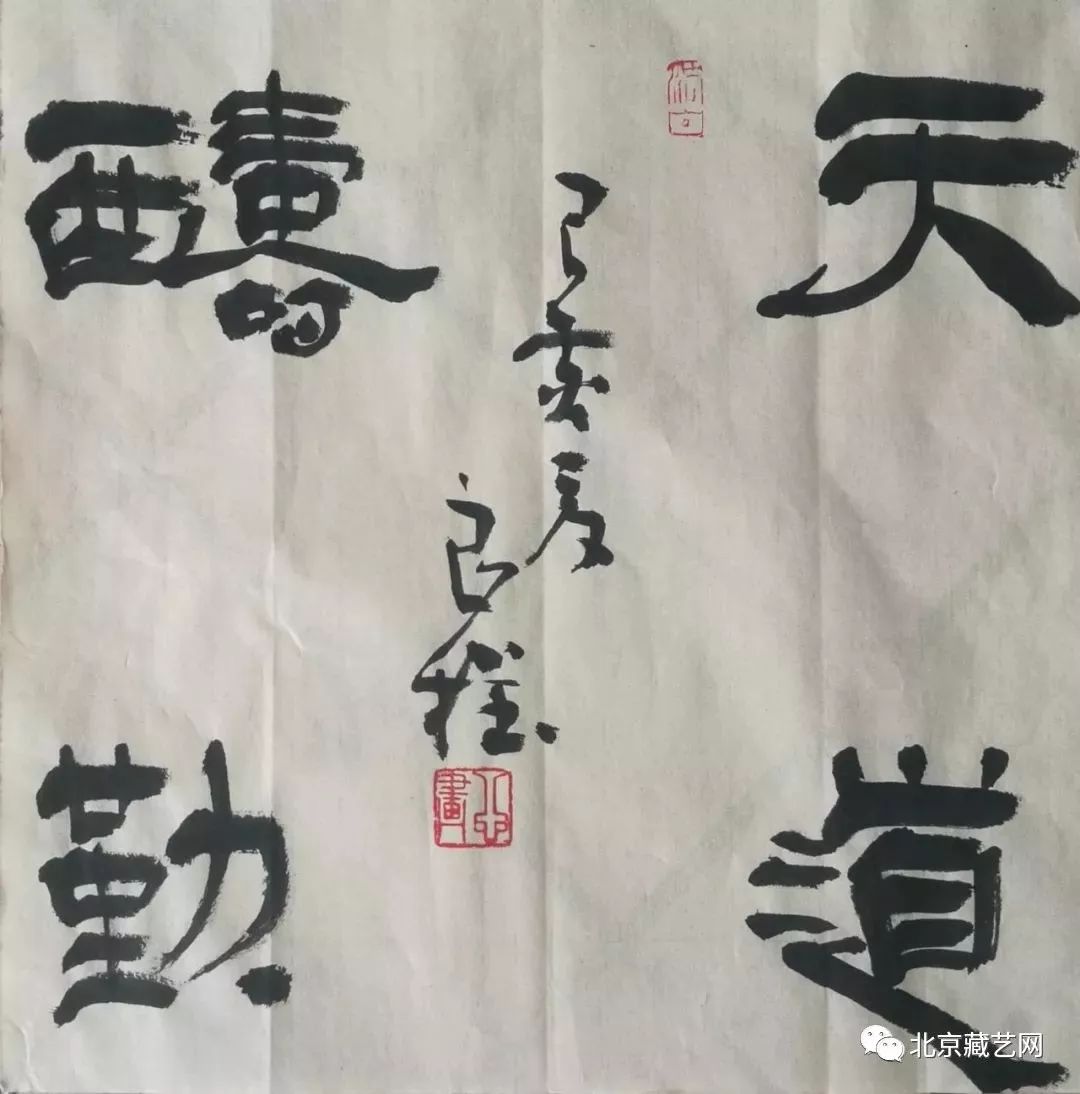 天道
酬勤
己亥夏
良柱
北京藏艺网